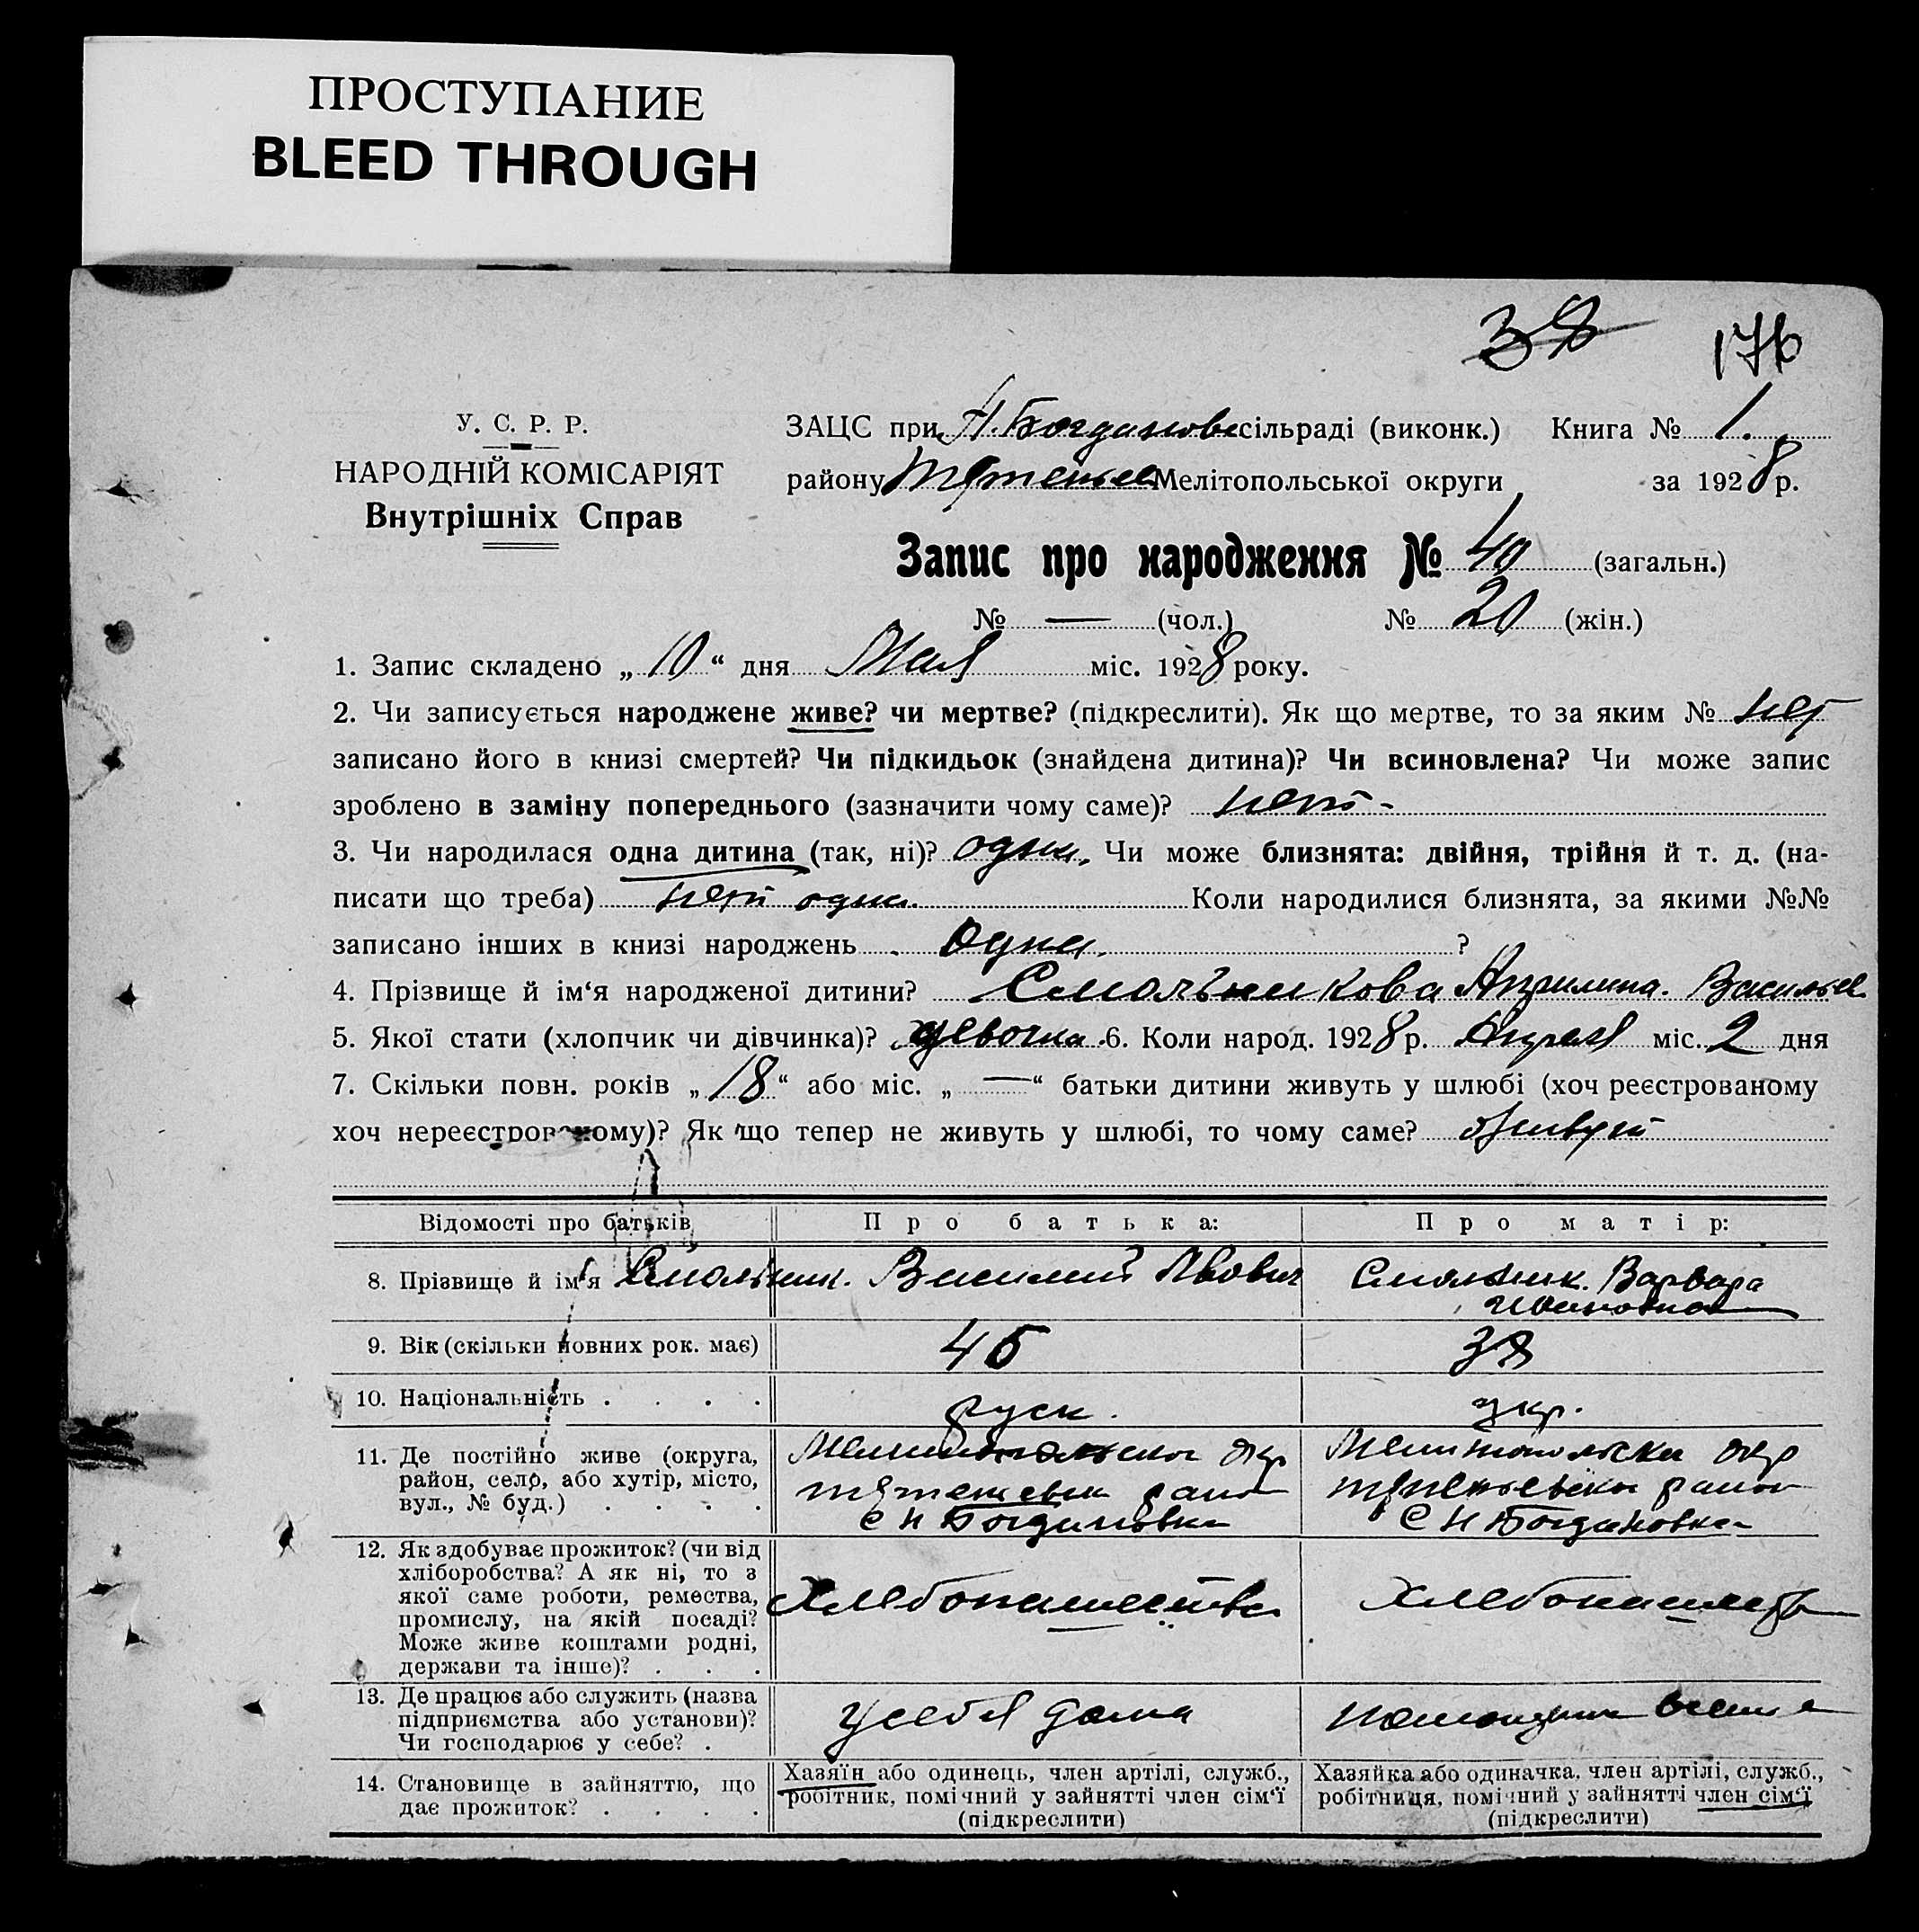 ПРОСТУПАНИЕ
BLEED THROUGH
38 176
У. С. Р. Р.
НАРОДНІЙ КОМІСАРІЯТ
Внутрішніх Справ
ЗАЦС при Н. Богданове сільраді (виконк.) Книга № 1.
району Мелітопольської округи за 1928 р.
Запис про народження № 40 (загальн.)
№ — (чол.) № 20 (жін.)
1. Запис складено „ 10 “ дня Мая міс. 1928 року.
2. Чи записується народжене живе? чи мертве? (підкреслити). Як що мертве, то за яким № нет
записано його в книзі смертей? Чи підкидьок (знайдена дитина)? Чи всиновлена? Чи може запис
зроблено в заміну попереднього (зазначити чому саме)? нет -
3. Чи народилася одна дитина (так, ні)? одна. Чи може близнята: двійня, трійня й т. д. (на-
писати що треба) нет одна. Коли народилися близнята, за якими №№
записано інших в книзі народжень Одна. ?
4. Прізвище й ім‘я народженої дитини? Смольникова Васильев
5. Якої стати (хлопчик чи дівчинка)? девочка 6. Коли народ. 1928 р. Апреля міс. 2 дня
7. Скільки повн. років „ 18 “ або міс. „ — “ батьки дитини живуть у шлюбі (хоч реєстрованому
хоч нереєстрованому)? Як що тепер не живуть у шлюбі, то чому саме?
Відомості про батьків Про батька: Про матір:
8. Прізвище й ім‘я Смольник. Василий Львович Смольник. Варвара
Ивановна
9. Вік (скільки повних рок. має) 45 38
10. Національність . . . . руск. укр.
11. Де постійно живе (округа, Мелитопольской окр Мелитопольски окр
район, село, або хутір, місто, район район
вул., № буд.) . . . . с Н Богдановка С Н Богдановка
12. Як здобуває прожиток? (чи від
хліборобства? А як ні, то з
якої саме роботи, ремества, Хлебопашество Хлебопашеств
промислу, на якій посаді?
Може живе коштами родні,
держави та інше)? . . .
13. Де працює або служить (назва
підприємства або установи)? у себя дома
Чи господарює у себе? .
14. Становище в зайняттю, що Хазяїн або одинець, член артілі, служб., Хазяйка або одиначка, член артілі, служб.,
дає прожиток? . . . . робітник, помічний у зайнятті член сім‘ї робітниця, помічний у зайнятті член сім‘ї
(підкреслити) (підкреслити)